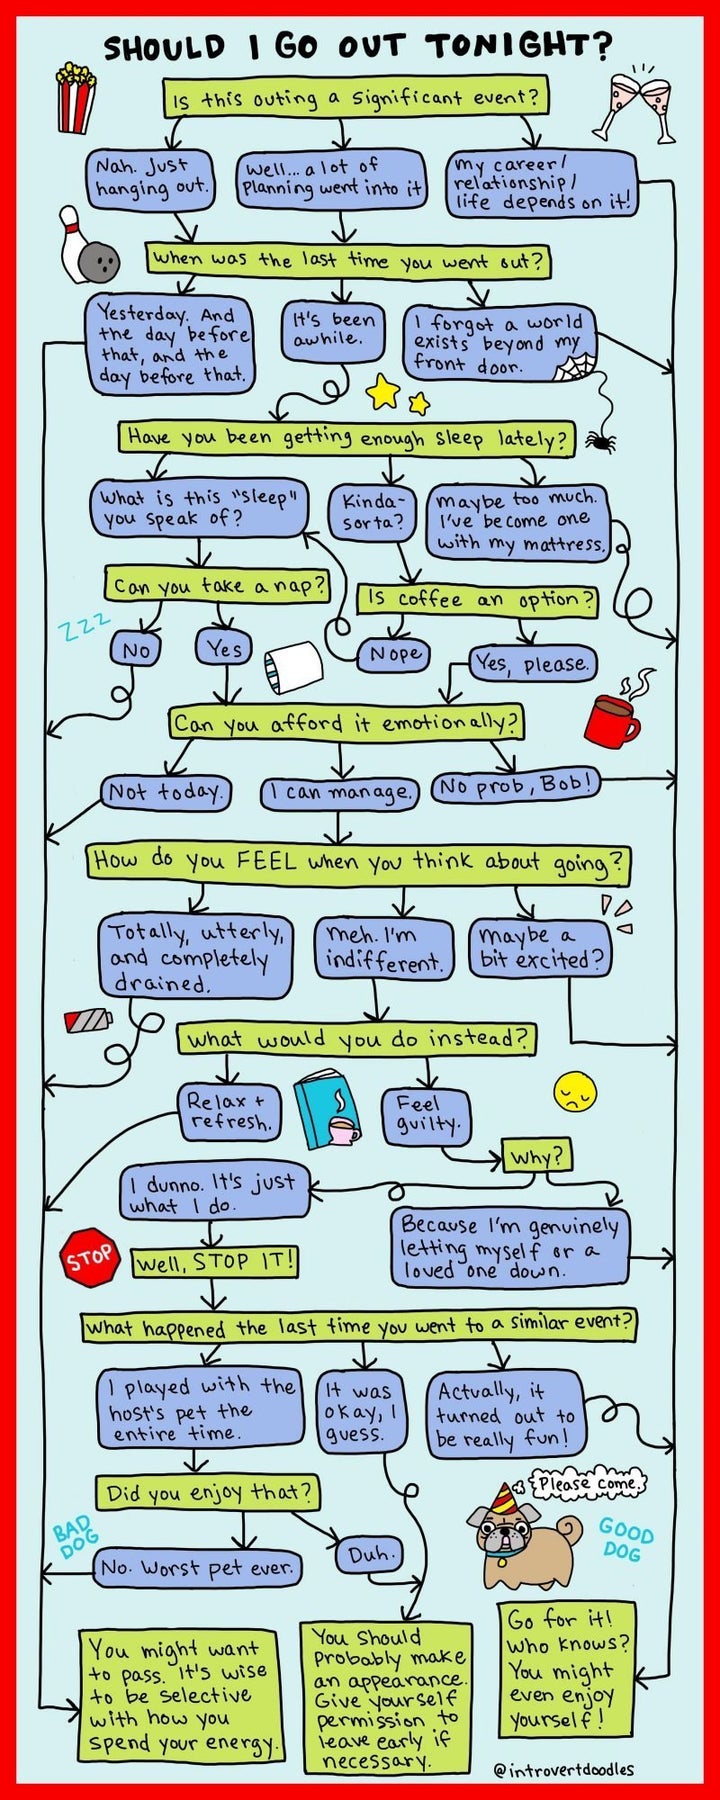 SHOULD I GO OUT TONIGHT?
Is this outing a significant event?
Nah. Just
hanging out.
Well... a lot of
planning went into it
My career/
relationship/
life depends on it!
When was the last time you went out?
Yesterday. And
the day before
that, and the
day before that.
It's been
awhile.
I forgot a world
exists beyond my
front door.
Have you been getting enough sleep lately?
What is this "sleep"
you speak of?
Kinda-
sorta?
Maybe too much.
I've become one
with my mattress.
Can you take a nap?
Is coffee an option?
ZZZ
No
Yes
Nope
Yes, please.
Can you afford it emotionally?
Not today.
I can manage.
No prob, Bob!
How do you FEEL when you think about going?
Totally, utterly,
and completely
drained.
Meh. I'm
indifferent.
Maybe a
bit excited?
What would you do instead?
Relax +
refresh.
Feel
guilty.
Why?
I dunno. It's just
what I do.
Because I'm genuinely
letting myself or a
loved one down.
STOP
Well, STOP IT!
What happened the last time you went to a similar event?
I played with the
host's pet the
entire time.
It was
okay, I
guess.
Actually, it
turned out to
be really fun!
Did you enjoy that?
Please come.
BAD
DOG
GOOD
DOG
No. Worst pet ever.
Duh.
You might want
to pass. It's wise
to be selective
with how you
spend your energy.
You should
probably make
an appearance.
Give yourself
permission to
leave early if
necessary.
Go for it!
Who knows?
You might
even enjoy
yourself!
@introvertdoodles